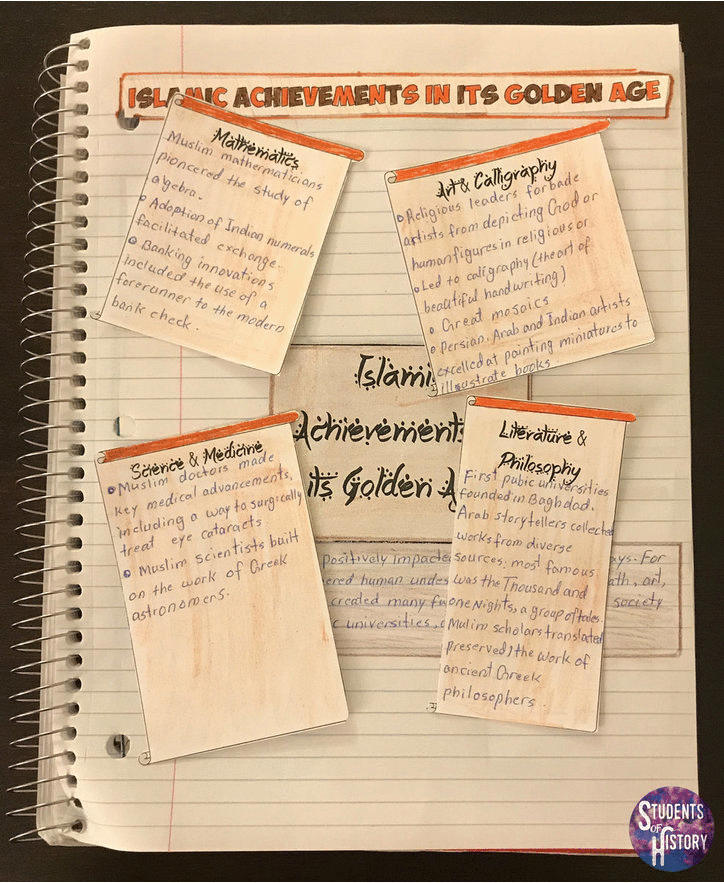 ISLAMIC ACHIEVEMENTS IN ITS GOLDEN AGE
Mathematics
Muslim mathermaticians
pioneered the study of
algebra.
Adoption of Indian numerals
facilitated exchange.
Banking innovations
included the use of a
forerunner to the modern
bank check.
Art & Calligraphy
Religious leaders forbade
artists from depicting God or
human figures in religious or
Led to caligraphy (the art of
beautiful handwriting)
Great mosaics
Persian, Arab and Indian artists
excelled at painting miniatures to
illustrate books
Islami
Achievement
its Golden Ag
Science & Medicine
Muslim doctors made
key medical advancements,
including a way to surgically
treat eye cataracts
Muslim scientists built
on the work of Greek
astronomers.
Literature &
Philosophy
First pubic universities
founded in Baghdad.
Arab storytellers collected
works from diverse
sources; most famous
was the Thousand and
one Nights, a group of tales.
Mulim scholars translated
preserved, the work of
ancient Greek
philosophers.
positively impacte ays. For
ered human undes ath, art,
created many fu society
c universities,
STUDENTS
OF
HISTORY